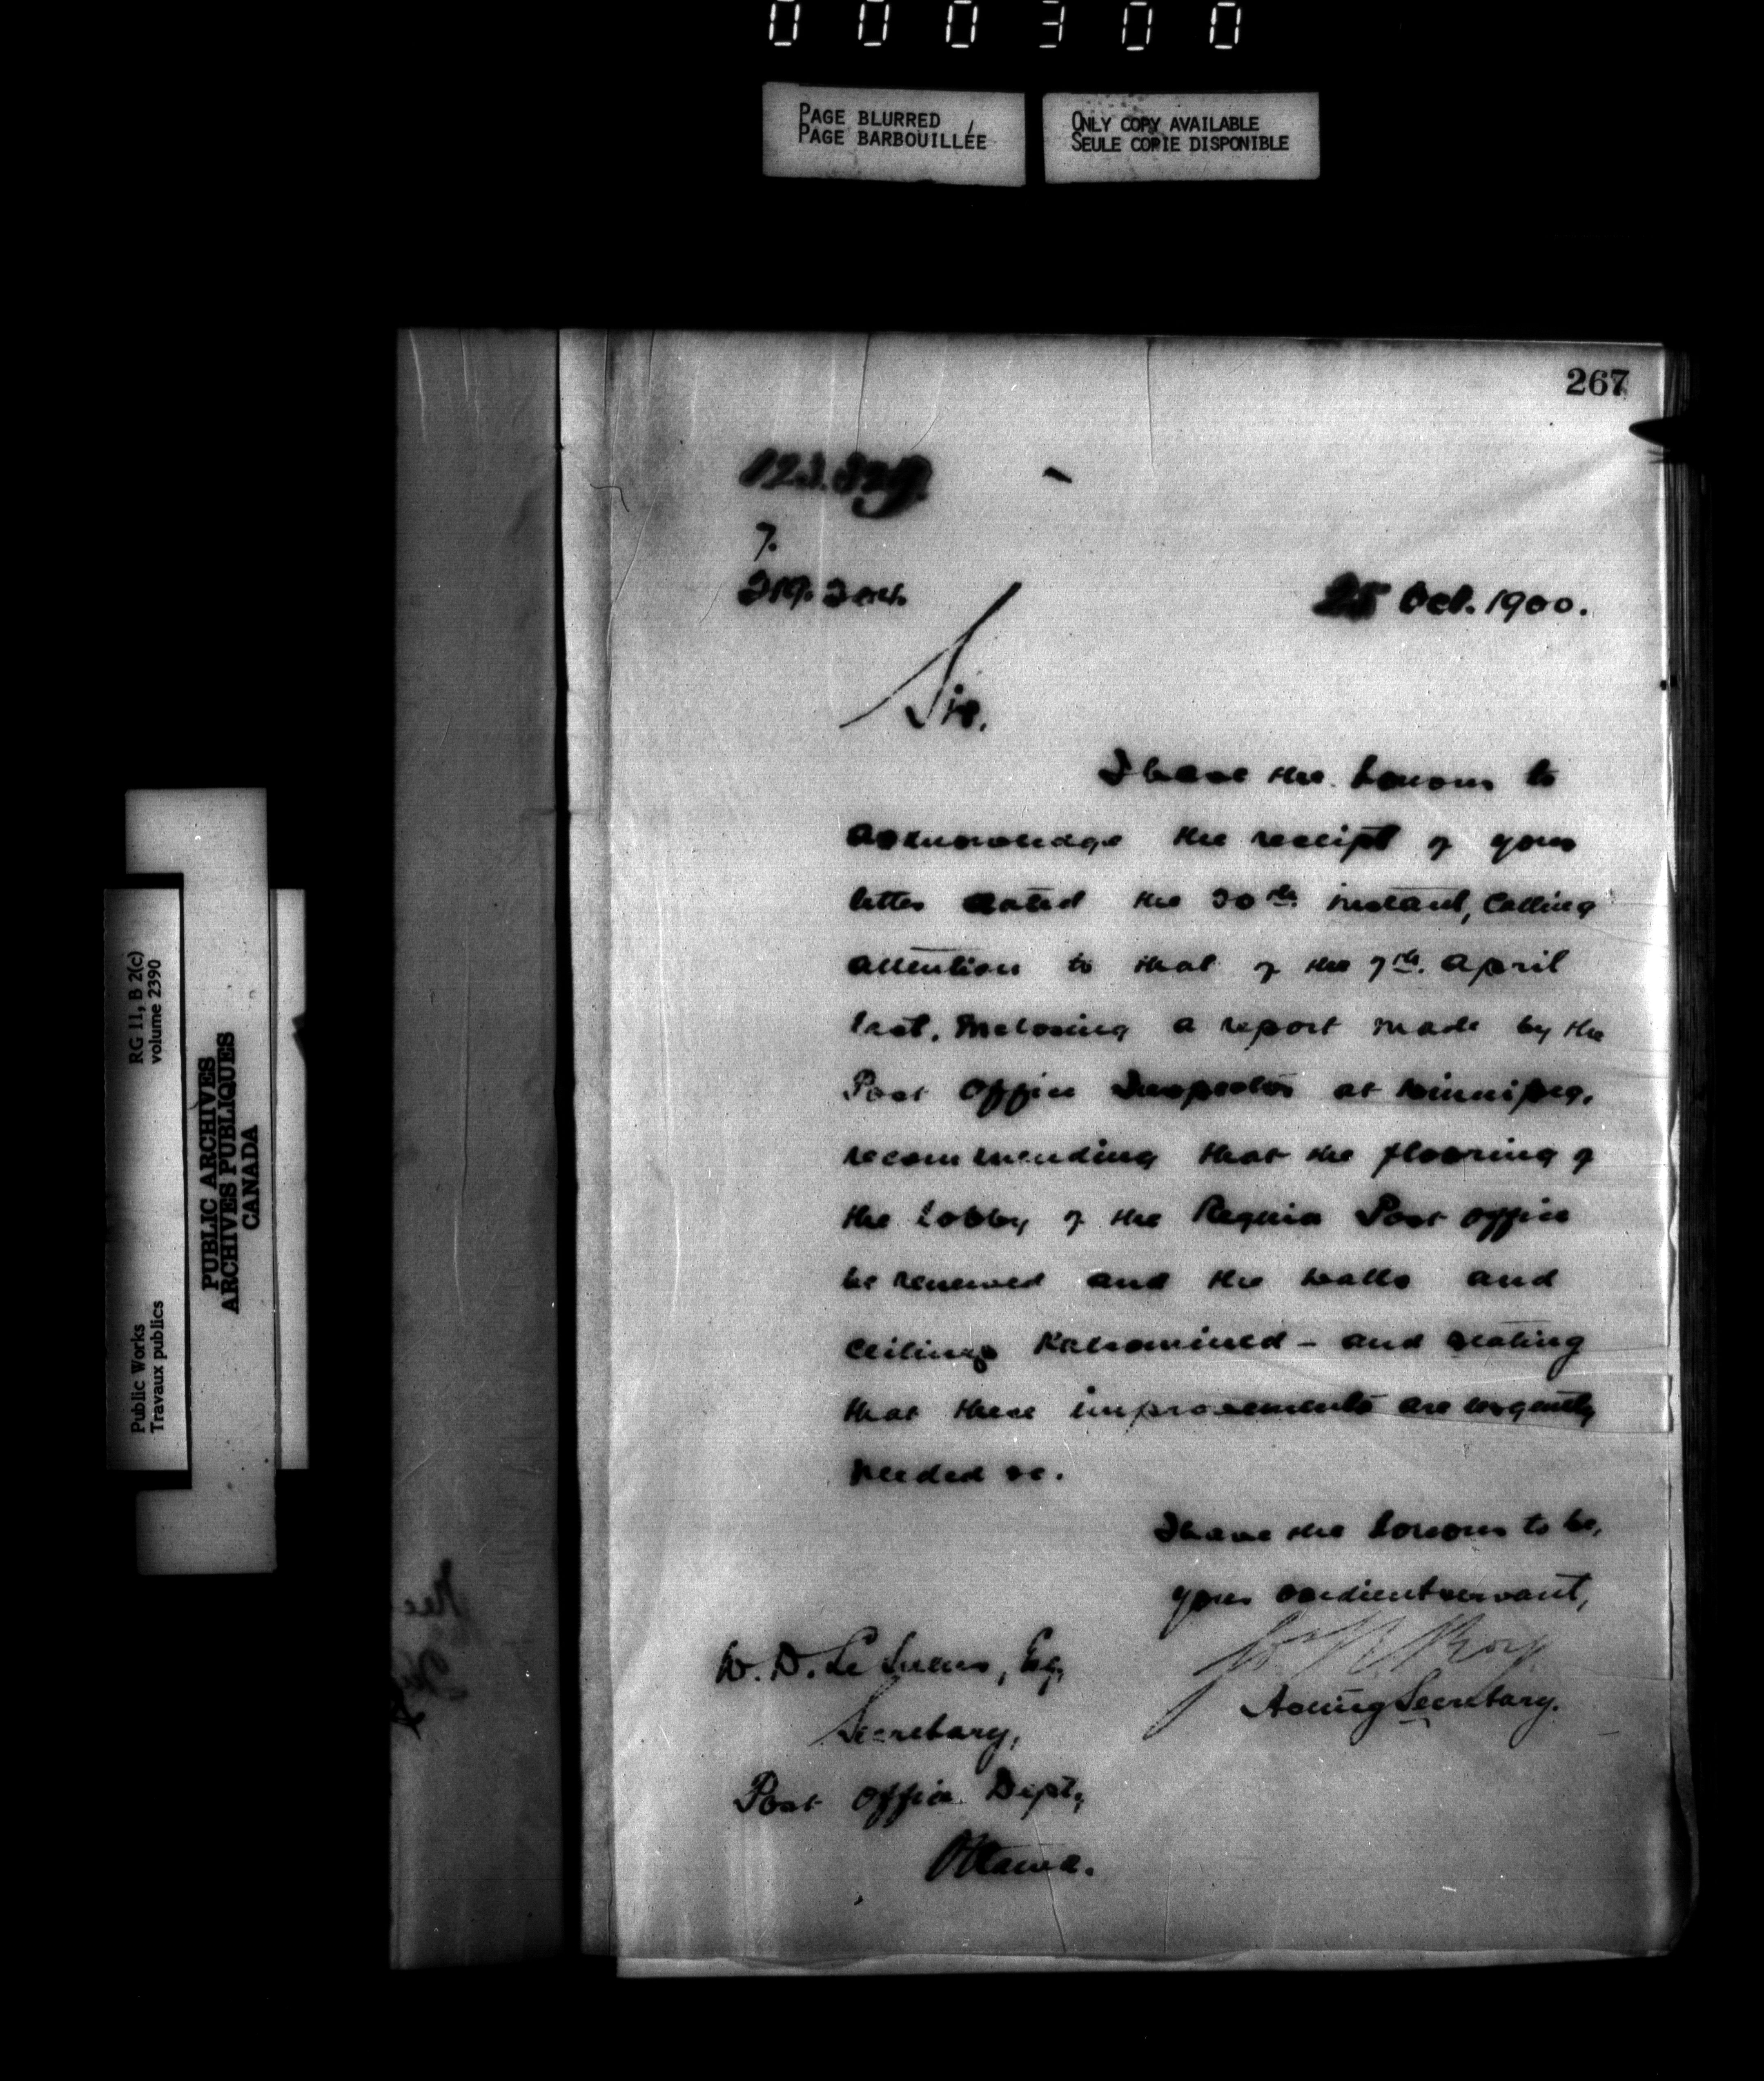 000300
PAGE BLURRED
PAGE BARBOUILLÉE
ONLY COPY AVAILABLE
SEULE COPIE DISPONIBLE
267
7.
25 Oct. 1900.
Sir,
I have the honour to
acknowledge the receipt of your
letter dated the 20th instant, calling
attention to that of the 7th April
last, inclosing a report made by the
Post Office Inspector at Winnipeg,
recommending that the flooring of
the lobby of the Regina Post office
be renewed and the walls and
ceilings Kalsomined – and stating
that these improvements are urgently
needed &c.
I have the honour to be,
your obedient servant,
Acting Secretary.
W. D. Le Sueur, Esq,
Secretary,
Post Office Dept,
Ottawa.
Public Works
Travaux publics
RG 11, B 2(c)
volume 2390
PUBLIC ARCHIVES
ARCHIVES PUBLIQUES
CANADA